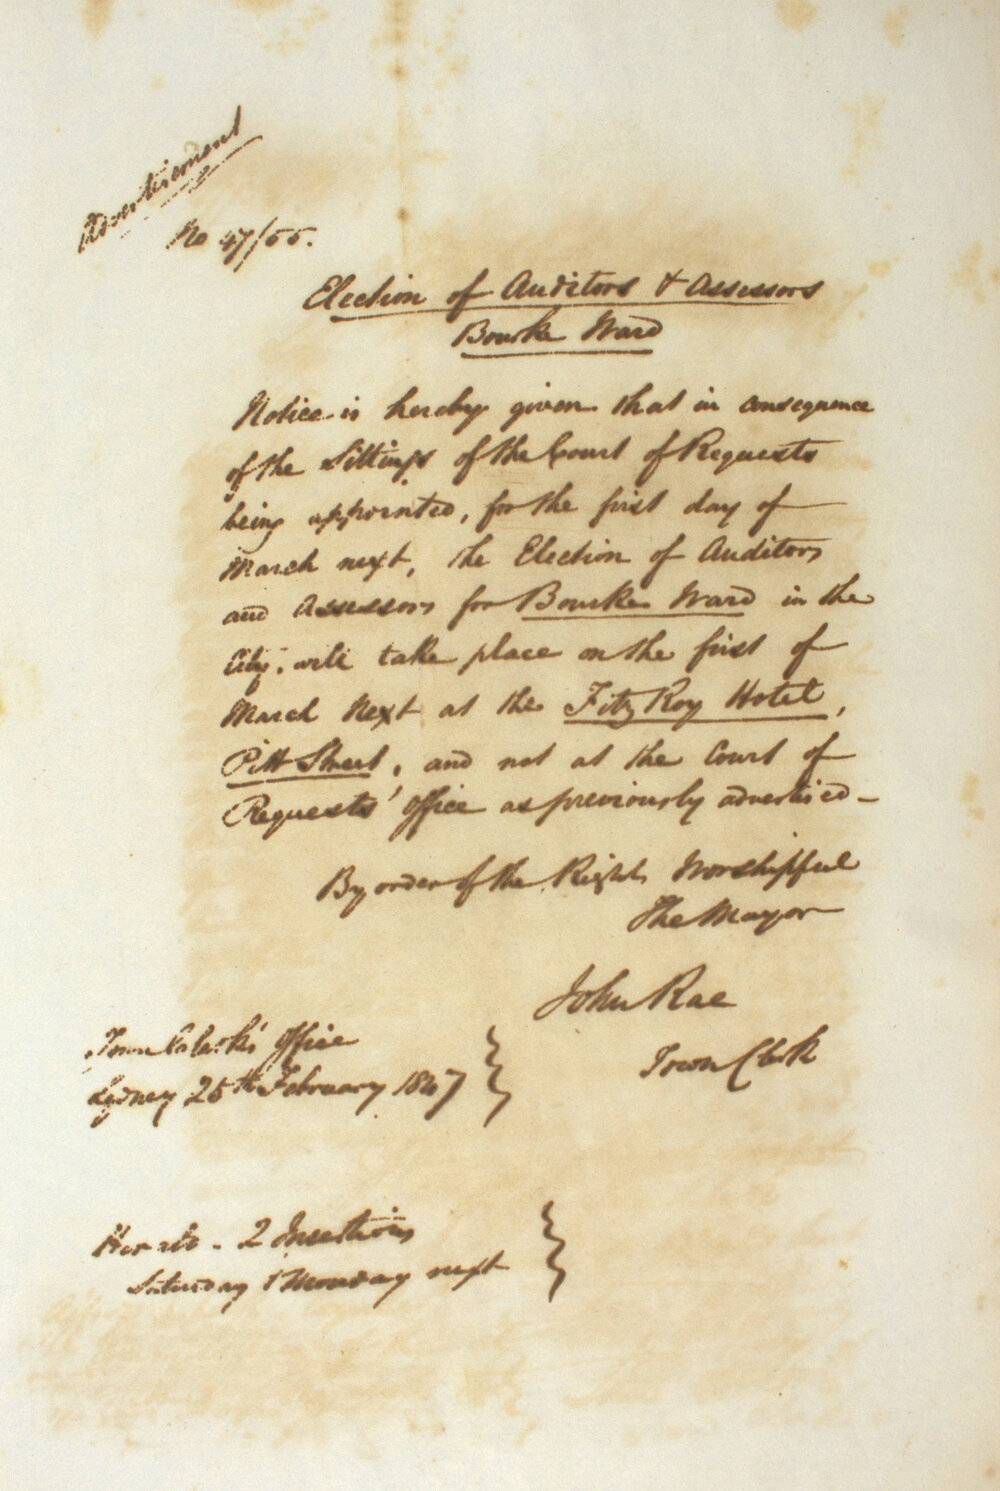 Advertisement
No 47/55.
Election of Auditors & Assessors
Bourke Ward
Notice is hereby given that in consequence
of the Sittings of the Court of Requests
being appointed, for the first day of
March next, the Election of Auditors
and Assessors for Bourke Ward in the
City, will take place on the first of
March Next at the Fitz Roy Hotel,
Pitt Street, and not at the Court of
Requests' Office as previously advertised -
By order of the Right Worshipful
The Mayor
John Rae
Town Clerk
Town Clerk's Office
Sydney 25th February 1847
Herald - 2 Insertions
Saturday & Monday next